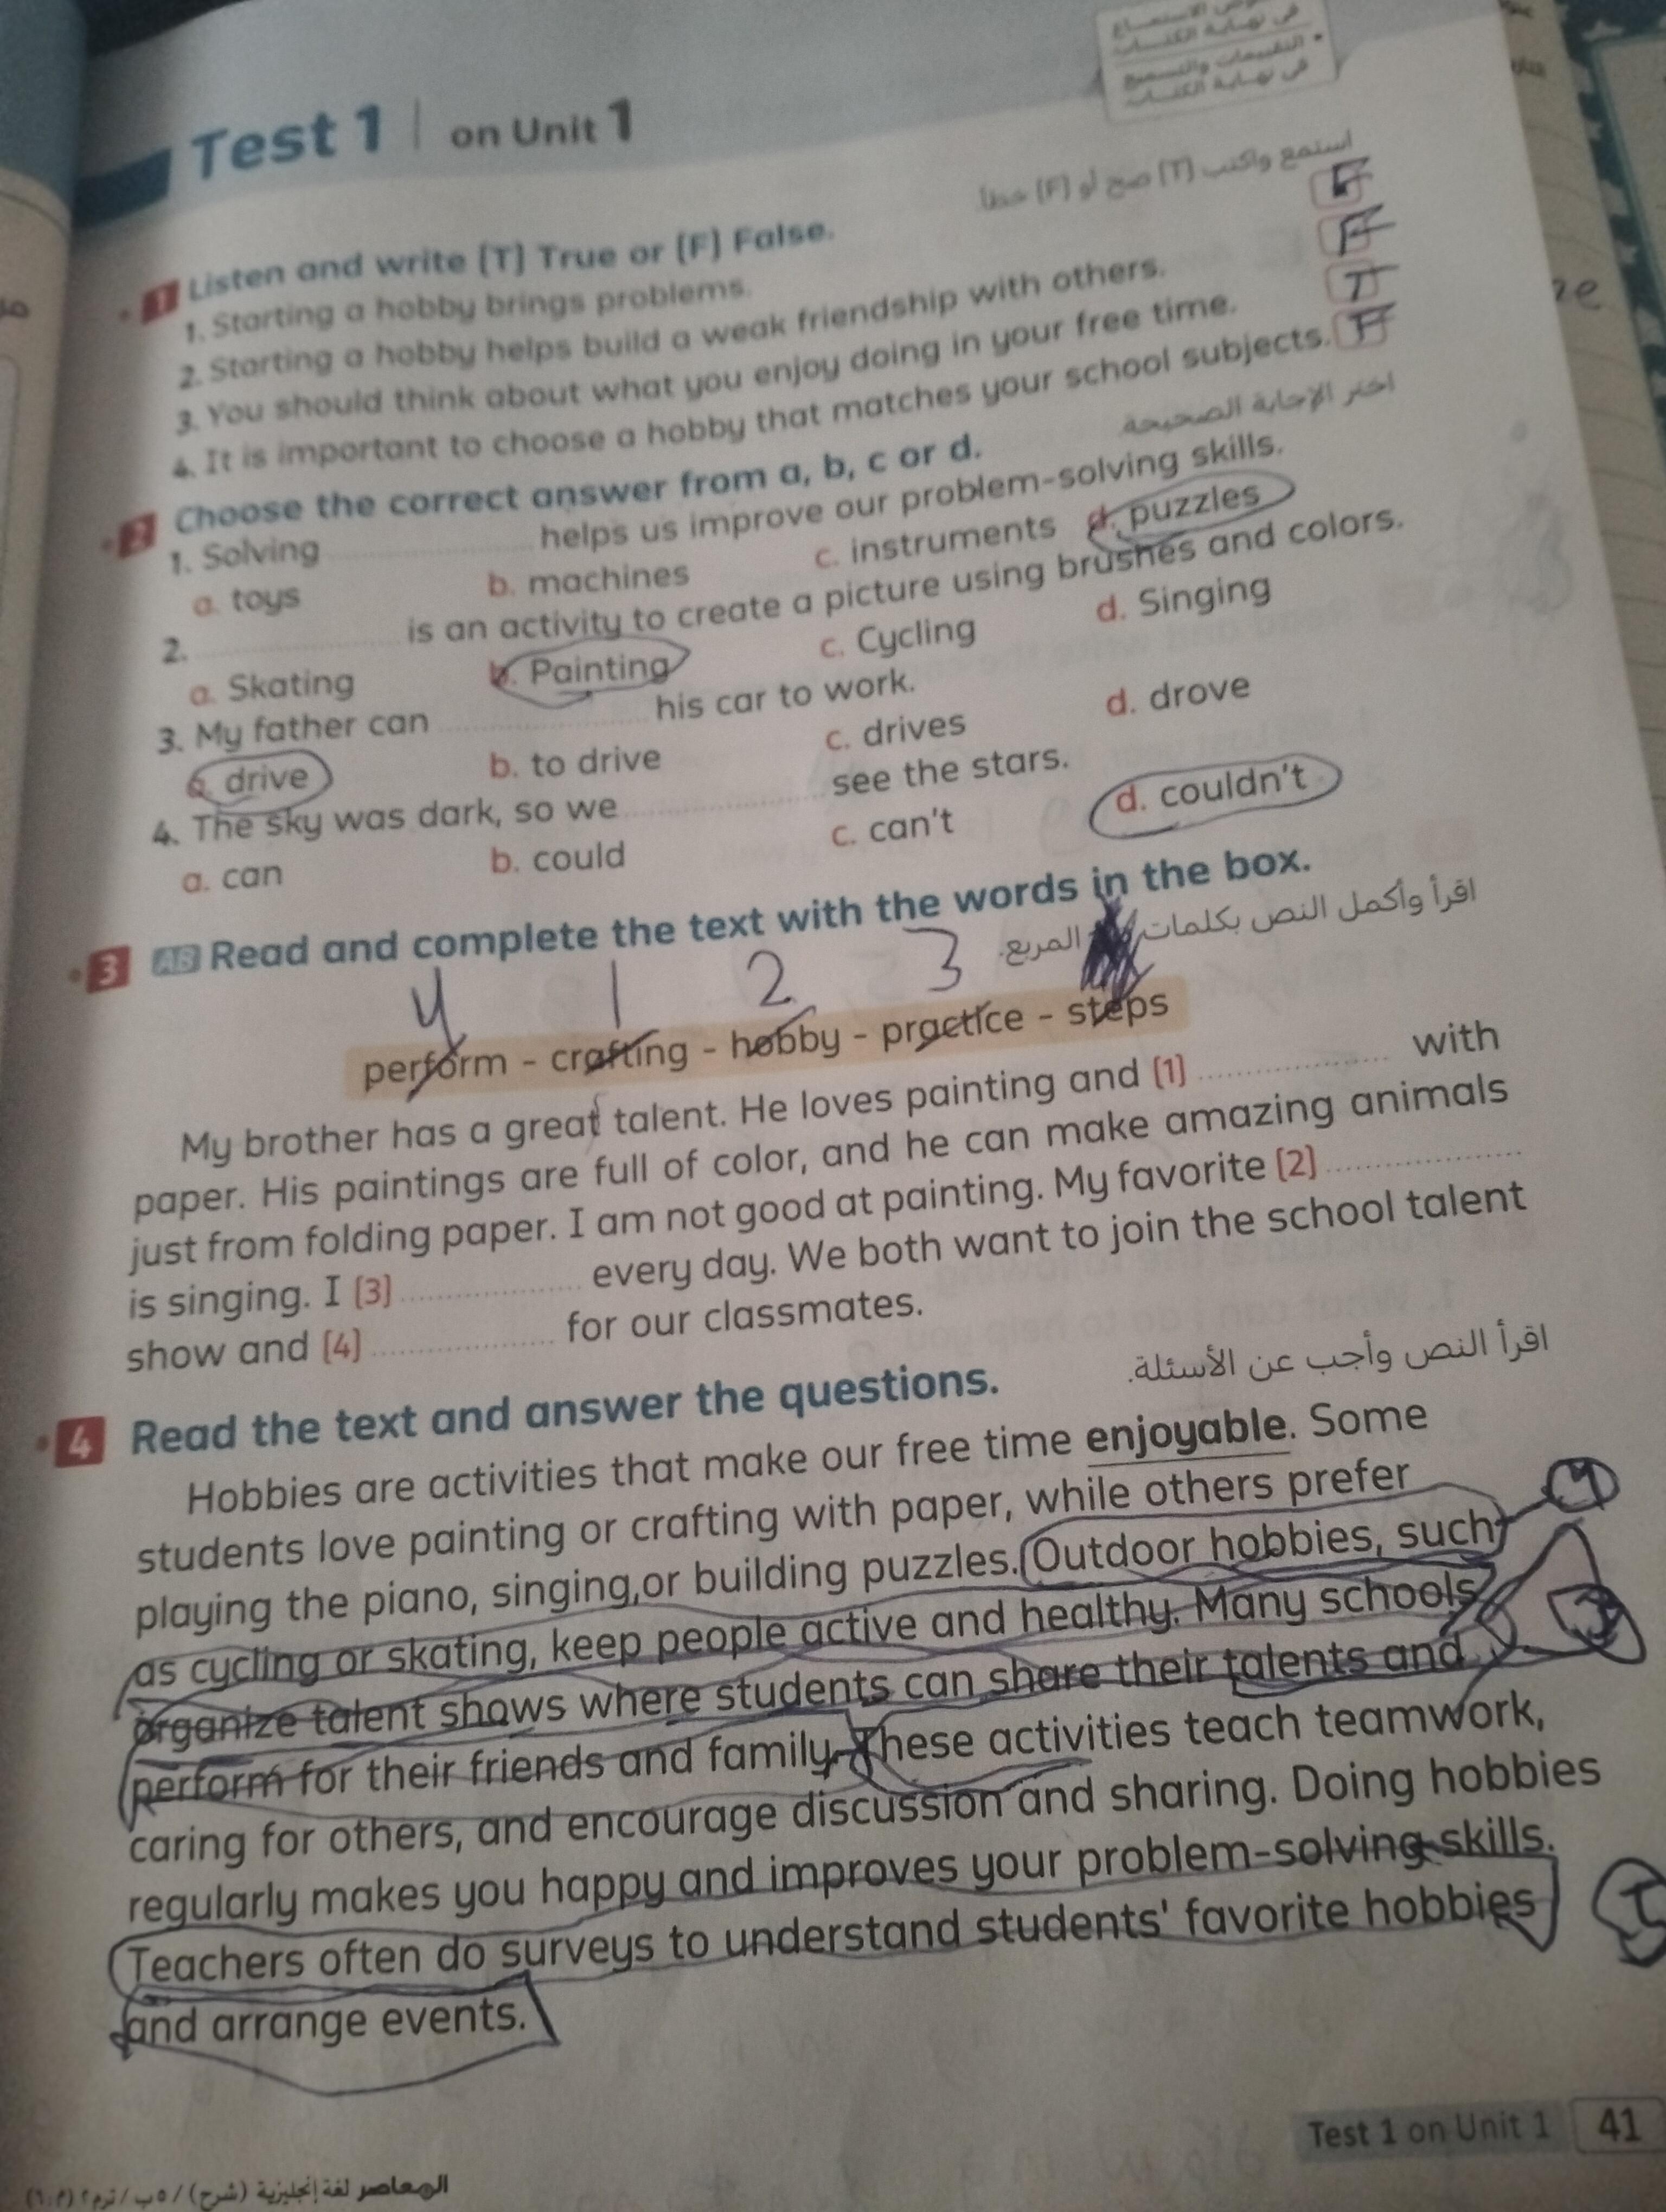 في نهاية الكتاب
• التقييمات والتسميع
في نهاية الكتاب
Test 1 | on Unit 1
استمع واكتب (T) صح أو (F) خطأ.
1 Listen and write (T) True or (F) False.
1. Starting a hobby brings problems. F
2. Starting a hobby helps build a weak friendship with others. F
3. You should think about what you enjoy doing in your free time. T
4. It is important to choose a hobby that matches your school subjects. F
اختر الإجابة الصحيحة
2 Choose the correct answer from a, b, c or d.
1. Solving .................... helps us improve our problem-solving skills.
a. toys b. machines c. instruments d. puzzles
2. .................... is an activity to create a picture using brushes and colors.
a. Skating b. Painting c. Cycling d. Singing
3. My father can .................... his car to work.
a. drive b. to drive c. drives d. drove
4. The sky was dark, so we .................... see the stars.
a. can b. could c. can't d. couldn't
3 AB Read and complete the text with the words in the box.
اقرأ وأكمل النص بكلمات المربع.
4 1 2 3
perform - crafting - hobby - practice - steps
My brother has a great talent. He loves painting and (1) .................... with
paper. His paintings are full of color, and he can make amazing animals
just from folding paper. I am not good at painting. My favorite (2) ....................
is singing. I (3) .................... every day. We both want to join the school talent
show and (4) .................... for our classmates.
4 Read the text and answer the questions.
اقرأ النص وأجب عن الأسئلة.
Hobbies are activities that make our free time enjoyable. Some
students love painting or crafting with paper, while others prefer
playing the piano, singing,or building puzzles. Outdoor hobbies, such
as cycling or skating, keep people active and healthy. Many schools
organize talent shows where students can share their talents and
perform for their friends and family. These activities teach teamwork,
caring for others, and encourage discussion and sharing. Doing hobbies
regularly makes you happy and improves your problem-solving skills.
Teachers often do surveys to understand students' favorite hobbies
and arrange events.
Test 1 on Unit 1 41
المعاصر لغة إنجليزية (شرح) / ٥ ب / ترم ٢ (م: ٦)